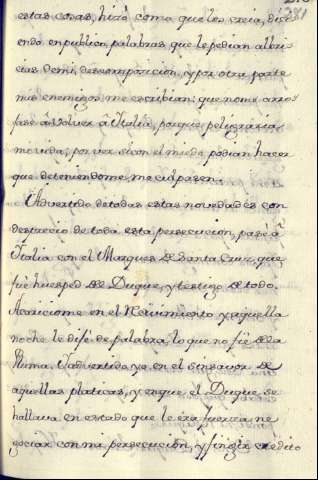 estas cosas, hizo como que los creia, dici
endo en publico palabras que le pedian albri
cias de mi descomposicion, y por otra parte
mis enemigos me escribian: que no me arro
jase á volver á Italia, porque peligraria
mi vida; por ver si con el miedo podian hacer
que deteniendome, me culpasen.
Advertido de todas estas novedades con
desprecio de toda esta persecucion, pasé a
Italia con el Marques de Santa Cruz, que
fué huesped del Duque, y testigo de todo.
Acariciome en el recivimiento y aquella
noche le dije de palabra, lo que no fié de la
Pluma. Yo advertido ya en el sinsavor de
aquellas platicas, y en que el Duque se
hallava en estado que le era fuerza ne
gociar con mi persecucion, y fingir credito